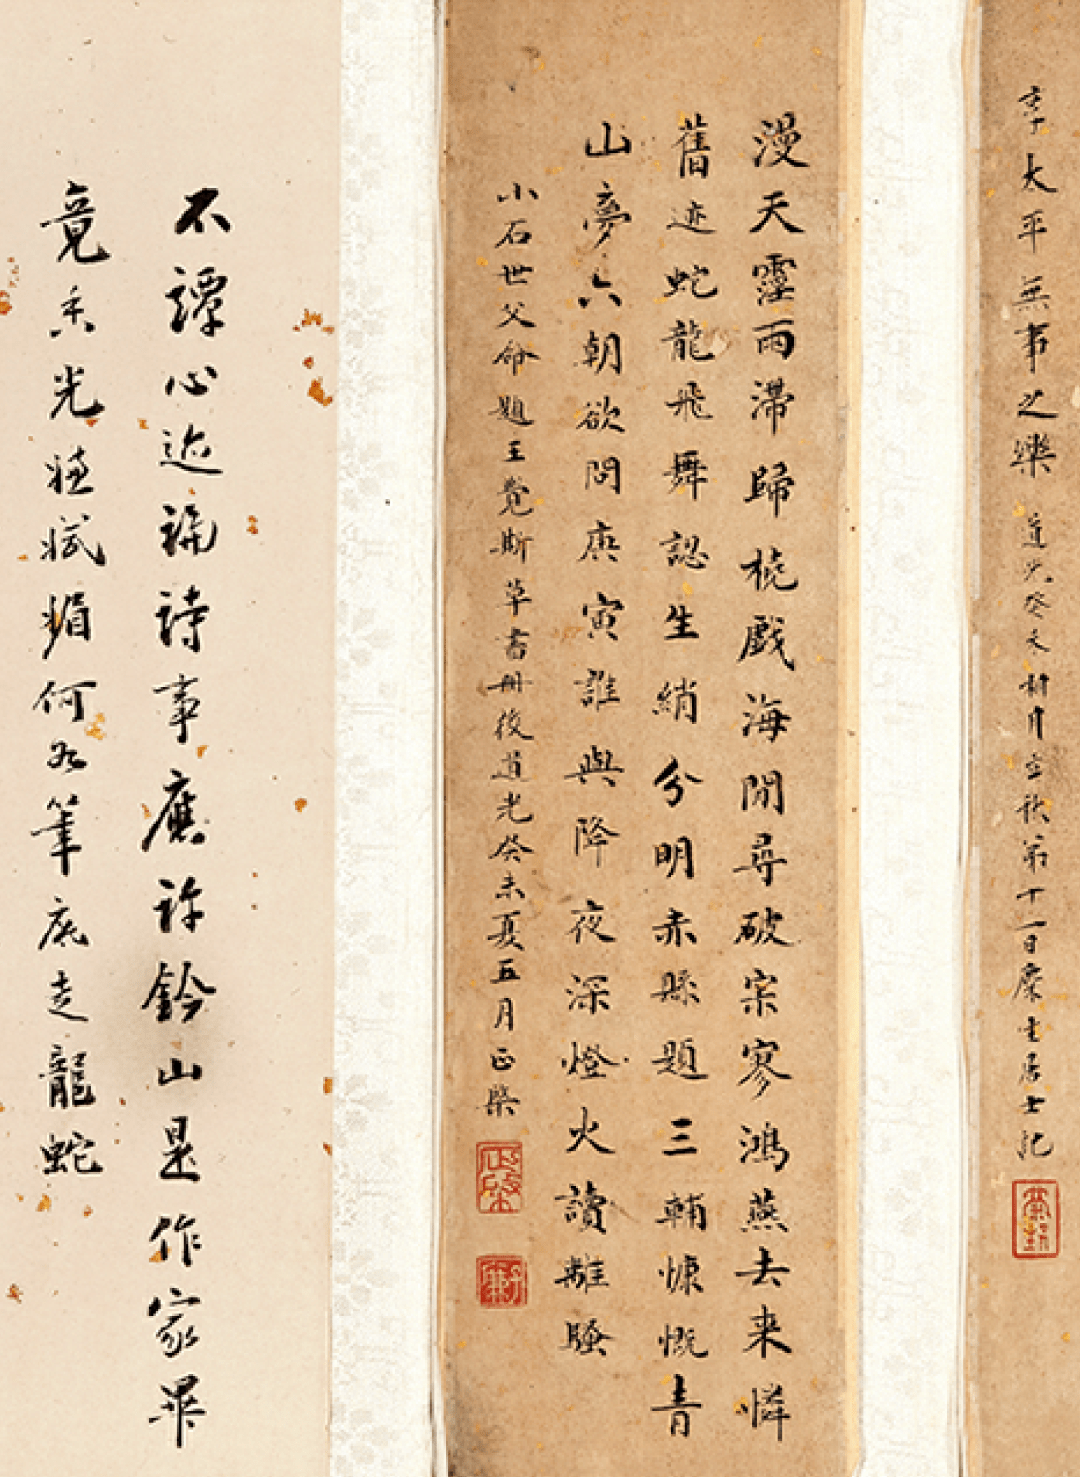 享太平無事之樂 道光癸未新月立秋前十一日慶生居士記
漫天霪雨滯歸橈戲海閒尋破寂寥鴻燕去來憐
舊迹蛇龍飛舞認生綃分明赤縣題三輔慷慨青
山夢六朝欲問庚寅誰與降夜深燈火讀離騷
小石世父命題王覺斯草書冊後道光癸未夏五月正棨
不譚心迹論詩事應許鈐山是作家畢
竟香光嫌膩媚何如筆底走龍蛇